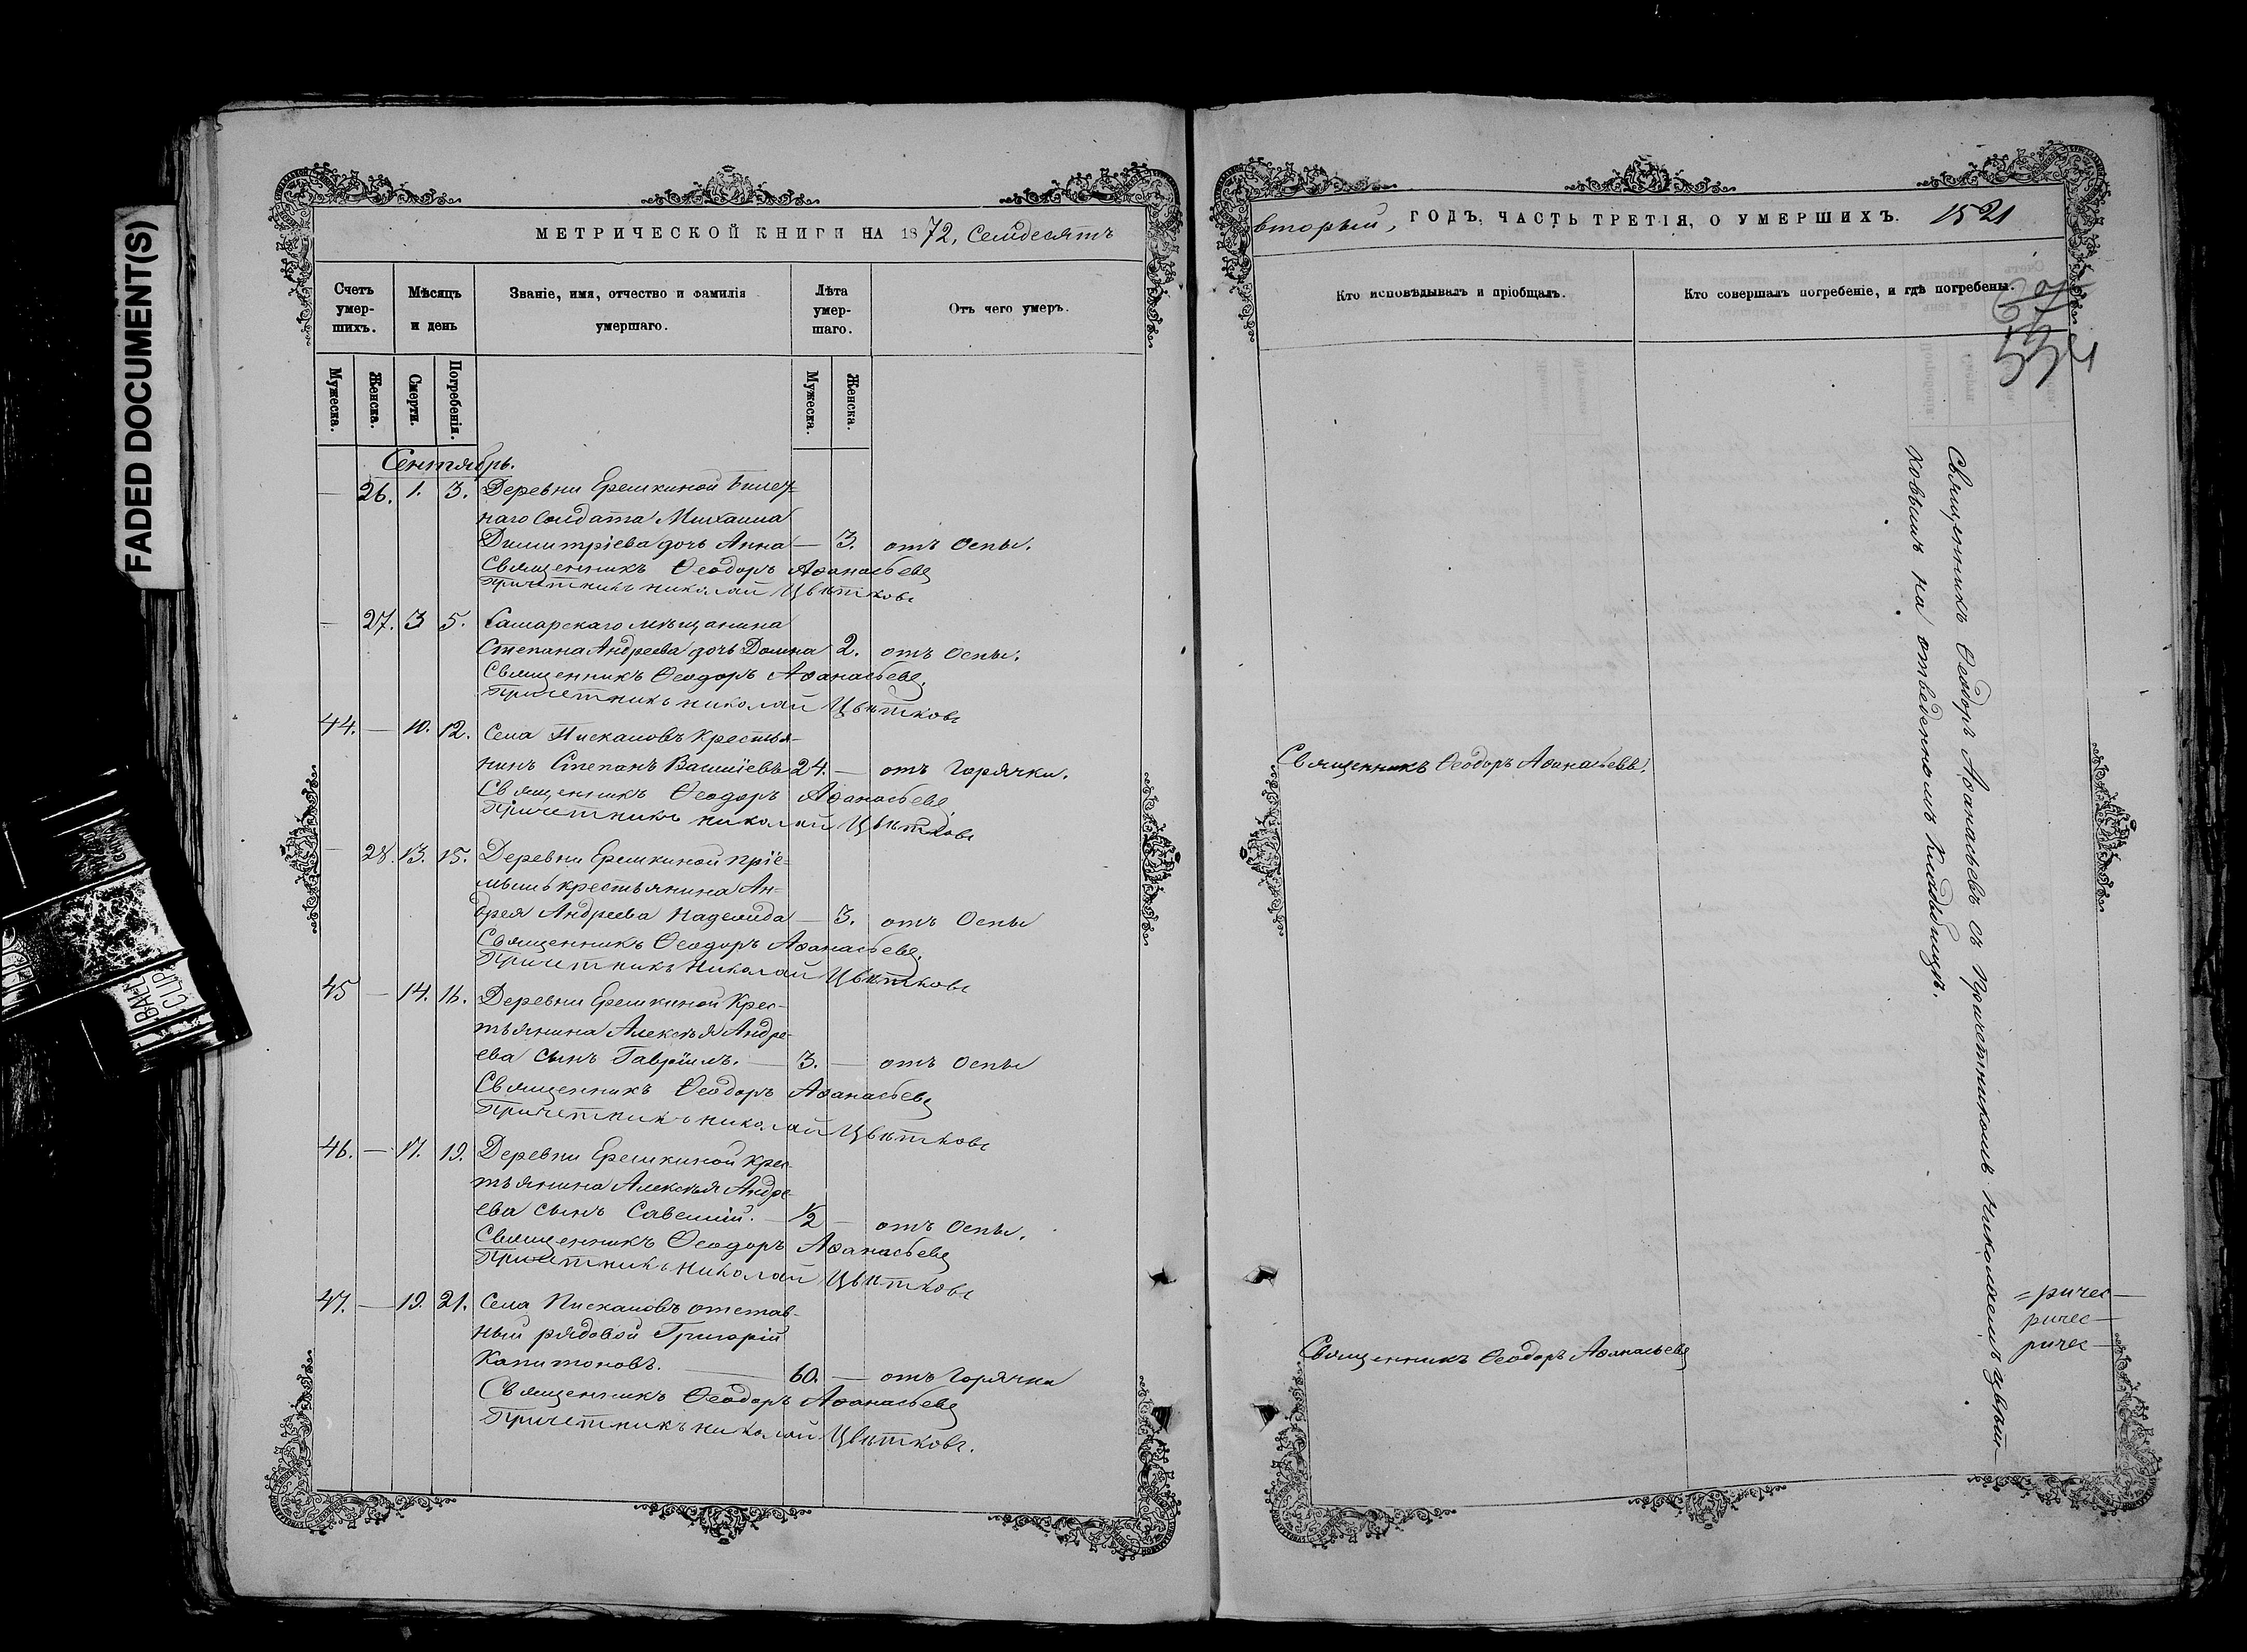 FADED DOCUMENT(S)
МЕТРИЧЕСКОЙ КНИГИ НА 1872, Семдесятъ
Счетъ умер-шихъ.
Мѣсяцъ и день
Званіе, имя, отчество и фамилія умершаго.
Лѣта умер-шаго.
Отъ чего умеръ.
Мужеска.
Женска.
Смерти.
Погребенія.
Мужеска.
Женска.
Сентябрь.
— 26. 1. 3. Деревни Ерешкиной Билет=
наго Солдата Михаила
Димитріева дочь Анна — 3. отъ Оспы.
Священникъ Ѳеодоръ Аѳанасьевъ
Причетникъ Николай Цвѣтковъ
— 27. 3 5. Самарскаго мѣщанина
Степана Андреева дочь Домна 2. отъ Оспы.
Священникъ Ѳеодоръ Аѳанасьевъ.
Причетникъ Николай Цвѣтковъ
44. — 10. 12. Села Пискаловъ Крестья-
нинъ Степанъ Василіевъ 24. — отъ Горячки.
Священникъ Ѳеодоръ Аѳанасьевъ
Причетникъ Николай Цвѣтковъ
— 28. 13. 15. Деревни Ерешкиной пріе=
мышъ крестьянина Ан=
дрея Андреева Надежда — 3. отъ Оспы
Священникъ Ѳеодоръ Аѳанасьевъ.
Причетникъ Николай Цвѣтковъ
45 — 14. 16. Деревни Ерешкиной Крес-
тьянина Алексѣя Андре-
ева сынъ Гавріилъ. — 3. — отъ Оспы
Священникъ Ѳеодоръ Аѳанасьевъ
Причетникъ Николай Цвѣтковъ
46. — 17. 19. Деревни Ерешкиной Крес-
тьянина Алексѣя Андре-
ева сынъ Савелій. — 1/2 — отъ Оспы.
Священникъ Ѳеодоръ Аѳанасьевъ
Причетникъ Николай Цвѣтковъ
47. — 19. 21. Села Пискаловъ отстав-
ный рядовой Григорій
Капитоновъ. — 60. — отъ Горячки
Священникъ Ѳеодоръ Аѳанасьевъ
Причетникъ Николай Цвѣтковъ.
вторый, ГОДЪ, ЧАСТЬ ТРЕТІЯ, О УМЕРШИХЪ. 1521
Кто исповѣдывалъ и пріобщалъ.
Кто совершалъ погребеніе, и гдѣ погребены.
Священникъ Ѳеодоръ Аѳанасьевъ.
Священникъ Ѳеодоръ Аѳанасьевъ
Священникъ Ѳеодоръ Аѳанасьевъ съ Причетникомъ Николаемъ Цвѣт-
ковымъ на отведенномъ Кладбищѣ.
=ричес—
ричес—
ричес—